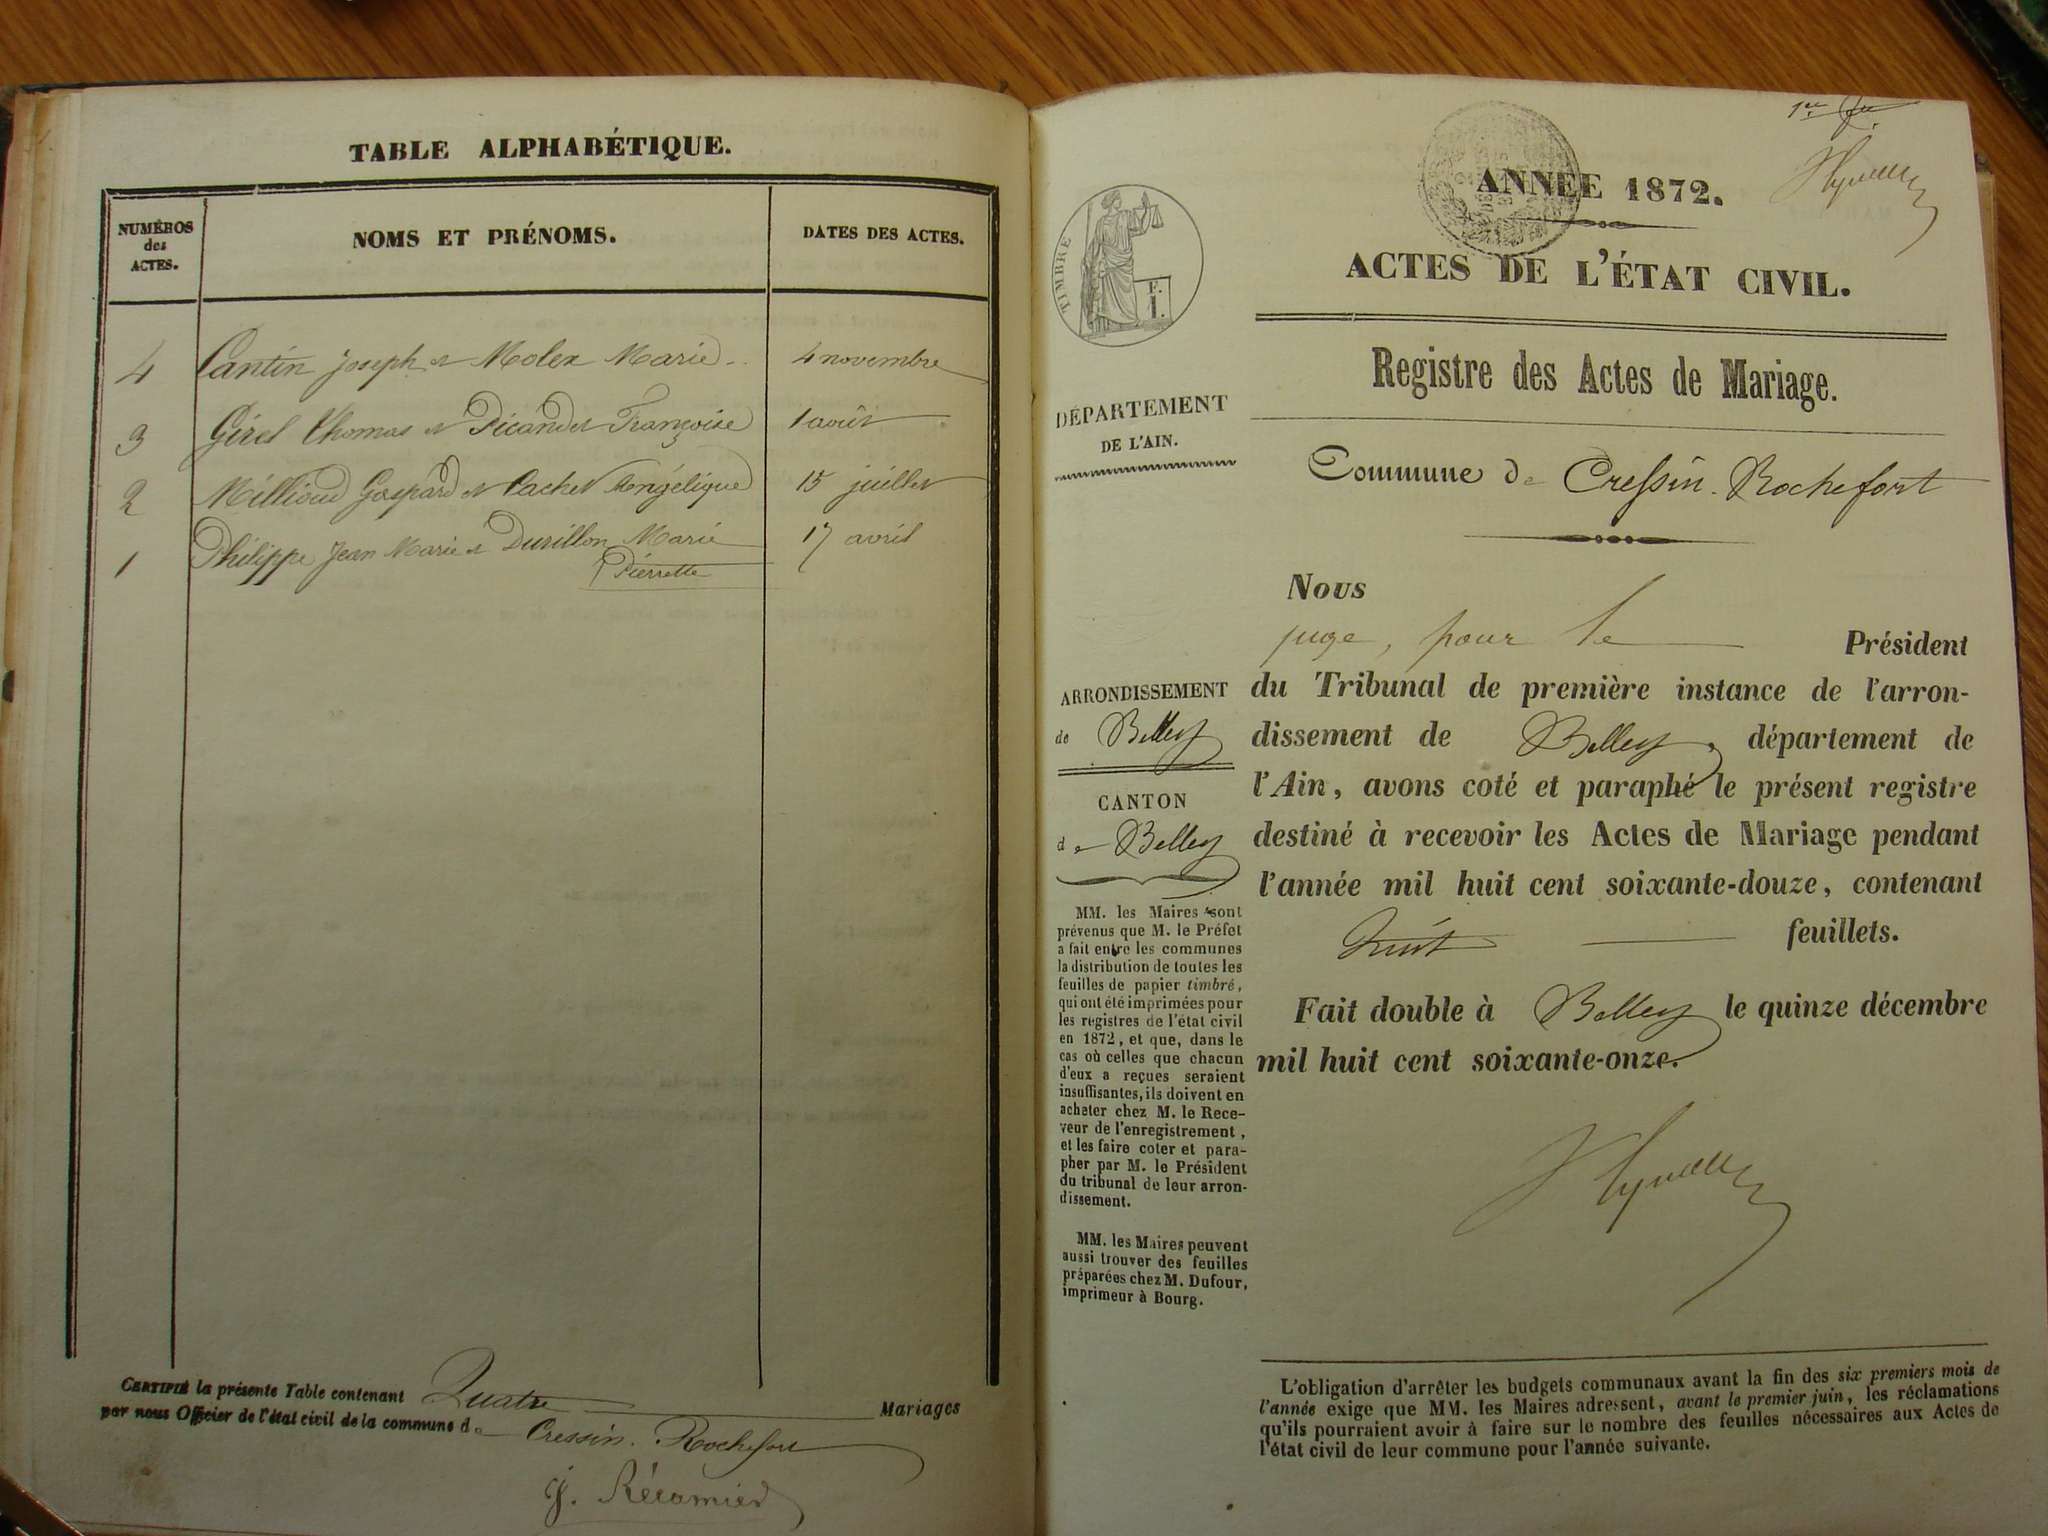 TABLE ALPHABÉTIQUE.
NUMÉROS
des
ACTES.
NOMS ET PRÉNOMS.
DATES DES ACTES.
4 Cantin Joseph et Molex Marie 4 novembre
3 Girel Thomas et Picandet Françoise 1 août
2 Millioud Gaspard et Cachet Angélique 15 juillet
1 Philippe Jean Marie et Durillon Marie 17 avril
Pierrette
CERTIFIÉ la présente Table contenant Quatre Mariages
par nous Officier de l'état civil de la commune de Cressin. Rochefort
J. Récamier
1er
ANNÉE 1872.
TIMBRE
F.
1.
ACTES DE L'ÉTAT CIVIL.
Registre des Actes de Mariage.
DÉPARTEMENT
DE L'AIN.
Commune de Cressin. Rochefort
Nous
juge, pour le Président
du Tribunal de première instance de l'arron-
dissement de Belley, département de
l'Ain, avons coté et paraphé le présent registre
destiné à recevoir les Actes de Mariage pendant
l'année mil huit cent soixante-douze, contenant
huit feuillets.
Fait double à Belley le quinze décembre
mil huit cent soixante-onze.
ARRONDISSEMENT
de Belley
CANTON
de Belley
MM. les Maires sont
prévenus que M. le Préfet
a fait entre les communes
la distribution de toutes les
feuilles de papier timbré,
qui ont été imprimées pour
les registres de l'état civil
en 1872, et que, dans le
cas où celles que chacun
d'eux a reçues seraient
insuffisantes, ils doivent en
acheter chez M. le Rece-
veur de l'enregistrement,
et les faire coter et para-
pher par M. le Président
du tribunal de leur arron-
dissement.
MM. les Maires peuvent
aussi trouver des feuilles
préparées chez M. Dufour,
imprimeur à Bourg.
L'obligation d'arrêter les budgets communaux avant la fin des six premiers mois de
l'année exige que MM. les Maires adressent, avant le premier juin, les réclamations
qu'ils pourraient avoir à faire sur le nombre des feuilles nécessaires aux Actes de
l'état civil de leur commune pour l'année suivante.